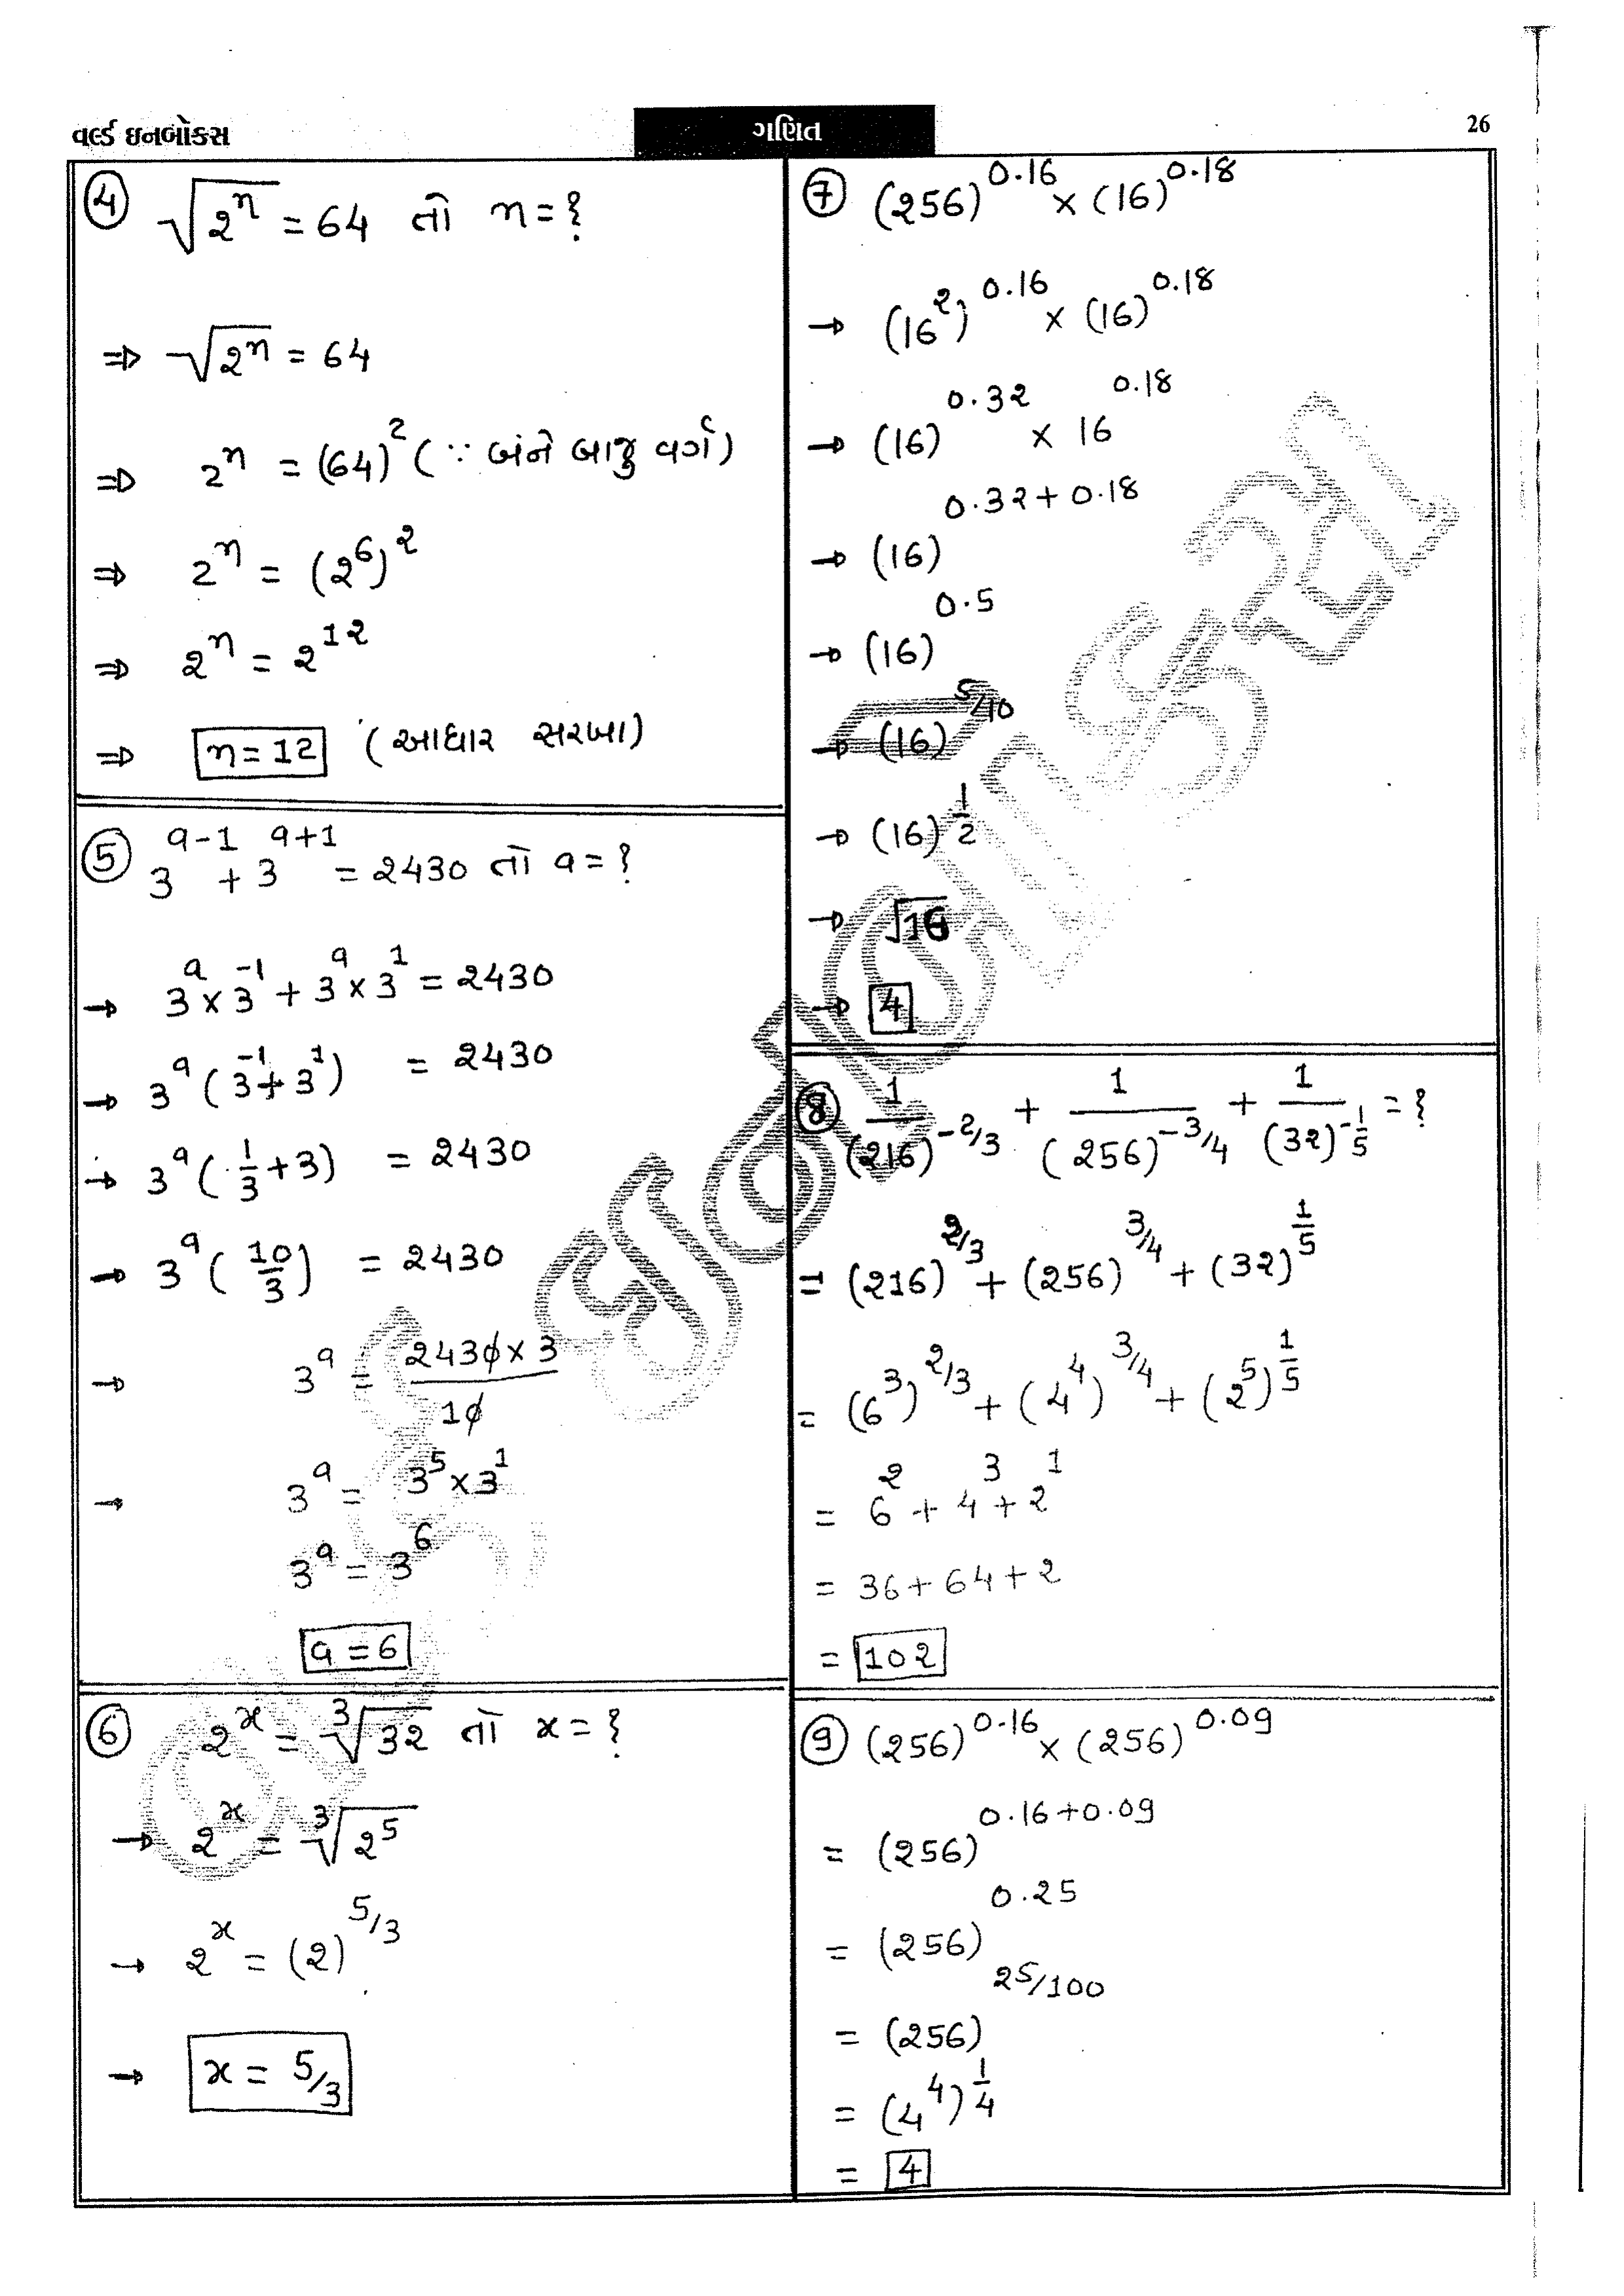 વર્લ્ડ ઇનબોક્સ
ગણિત
26
④ √(2^n) = 64 તો n = ?
⇒ √(2^n) = 64
⇒ 2^n = (64)^2 (∵ બંને બાજુ વર્ગ)
⇒ 2^n = (2^6)^2
⇒ 2^n = 2^12
⇒ n = 12 (આધાર સરખા)
⑤ 3^(a-1) + 3^(a+1) = 2430 તો a = ?
→ 3^a × 3^-1 + 3^a × 3^1 = 2430
→ 3^a (3^-1 + 3^1) = 2430
→ 3^a (1/3 + 3) = 2430
→ 3^a (10/3) = 2430
→ 3^a = 2430 × 3 / 10
→ 3^a = 3^5 × 3^1
3^a = 3^6
a = 6
⑥ 2^x = ∛32 તો x = ?
→ 2^x = ∛(2^5)
→ 2^x = (2)^5/3
→ x = 5/3
⑦ (256)^0.16 × (16)^0.18
→ (16^2)^0.16 × (16)^0.18
→ (16)^0.32 × 16^0.18
→ (16)^0.32+0.18
→ (16)^0.5
→ (16)^5/10
→ (16)^1/2
→ √16
→ 4
⑧ 1/(216)^-2/3 + 1/(256)^-3/4 + 1/(32)^-1/5 = ?
= (216)^2/3 + (256)^3/4 + (32)^1/5
= (6^3)^2/3 + (4^4)^3/4 + (2^5)^1/5
= 6^2 + 4^3 + 2^1
= 36 + 64 + 2
= 102
⑨ (256)^0.16 × (256)^0.09
= (256)^0.16+0.09
= (256)^0.25
= (256)^25/100
= (4^4)^1/4
= 4